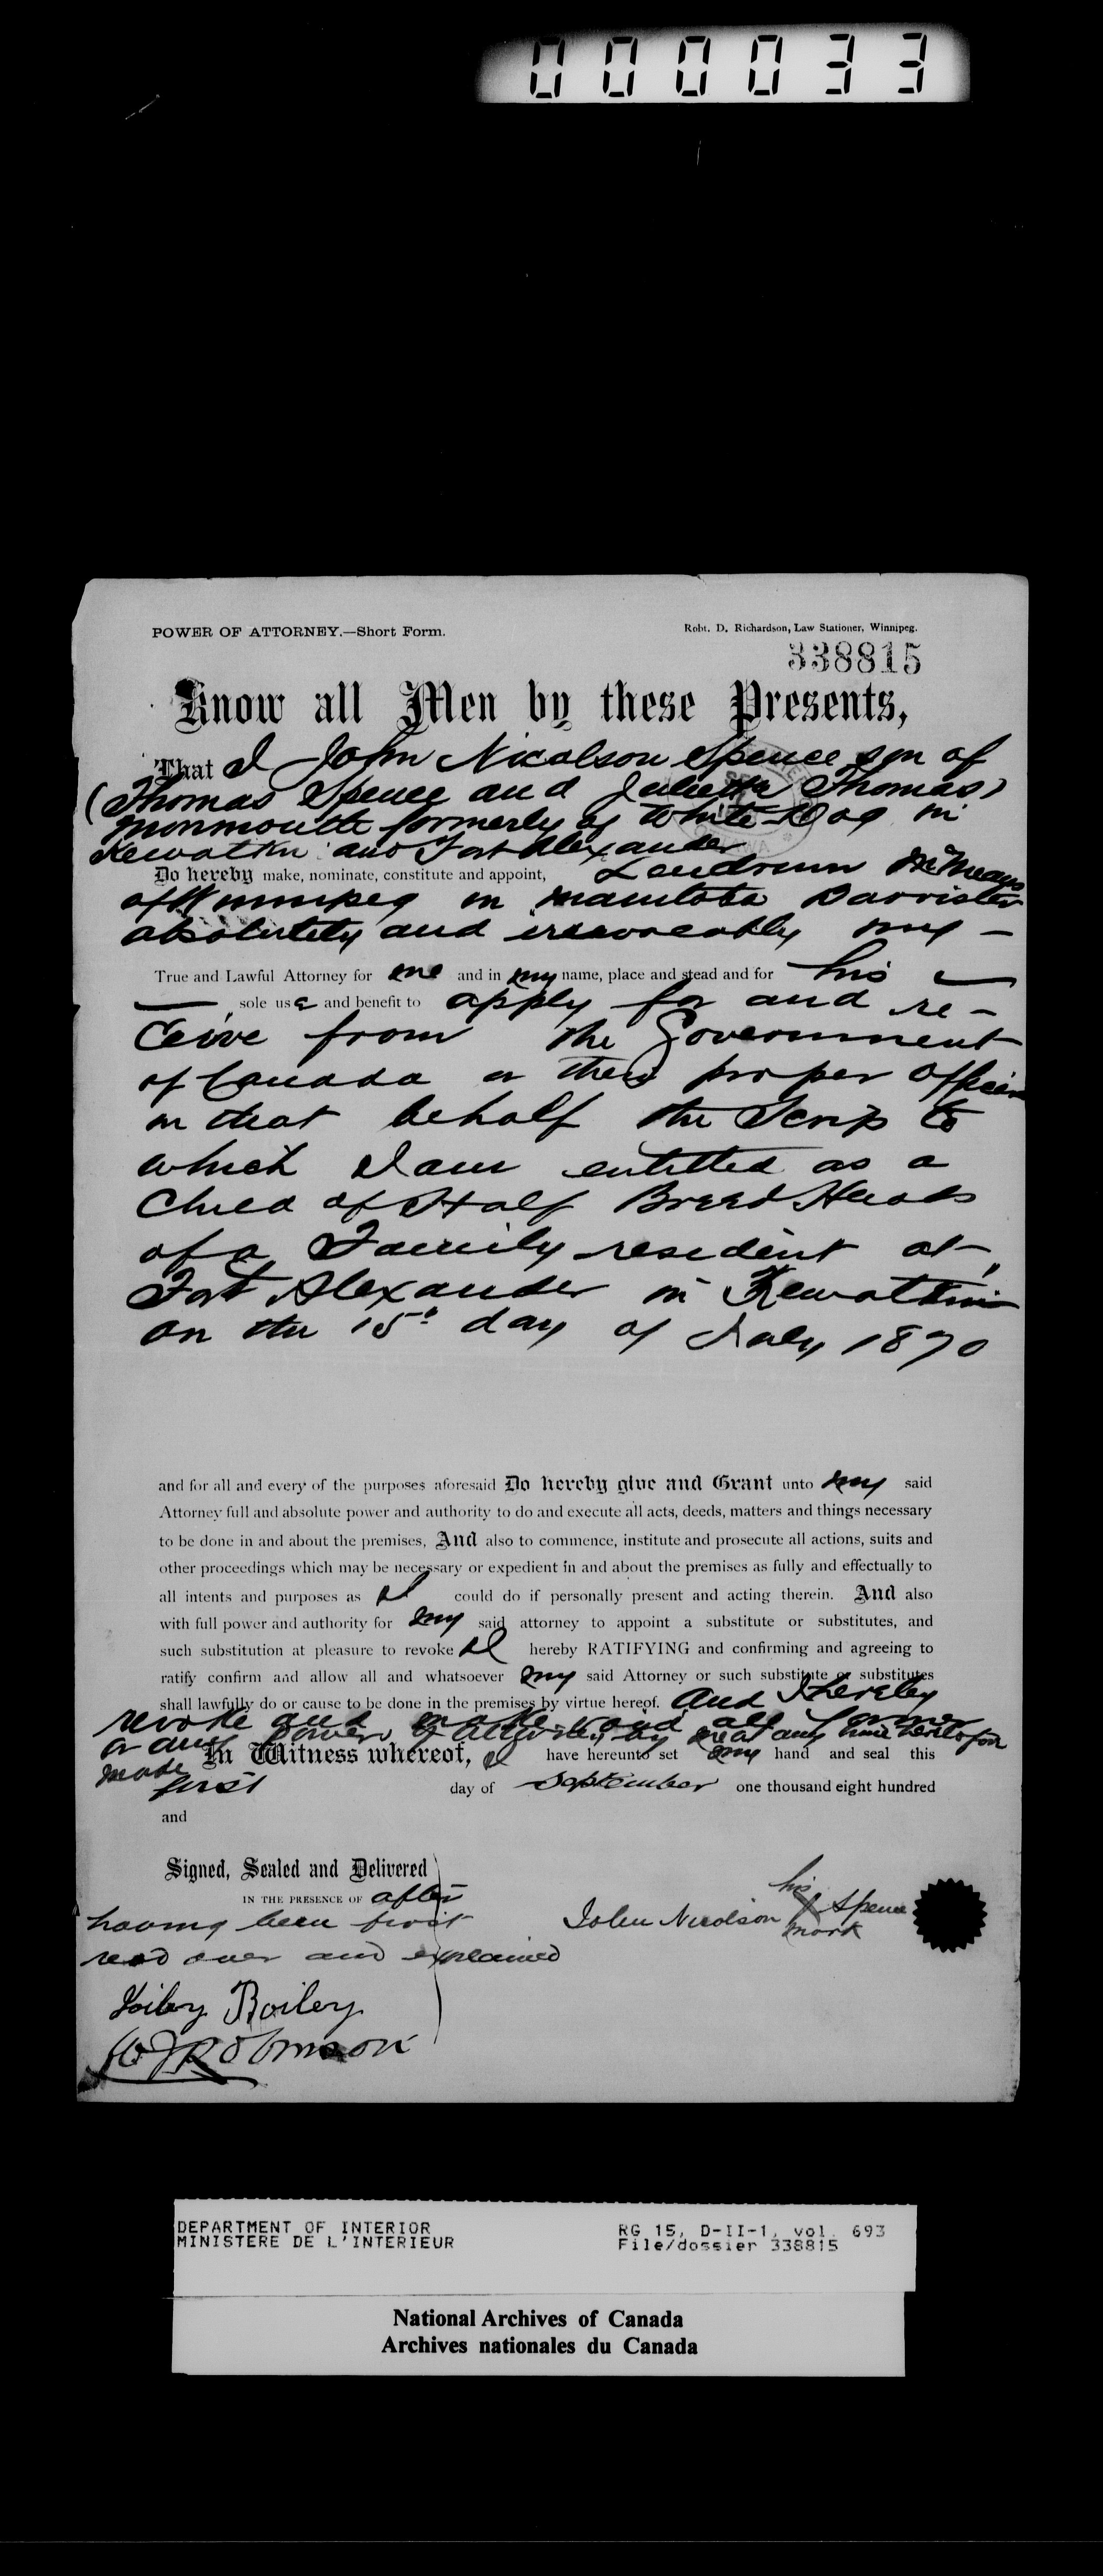 000033
POWER OF ATTORNEY.—Short Form.
Robt. D. Richardson, Law Stationer, Winnipeg.
338815
Know all Men by these Presents,
That I John Nicolson Spence son of
(Thomas Spence and Julietta Thomas)
Monmouth formerly of White Dog in
Kewatin and Fort Alexander
Do hereby make, nominate, constitute and appoint, Lendrum McMeans
of Winnipeg in Manitoba Barrister
absolutely and irrevocably my —
True and Lawful Attorney for me and in my name, place and stead and for his —
— sole use and benefit to apply for and re-
ceive from the Government
of Canada or their proper officer
in that behalf the Scrip to
which I am entitled as a
Child of Half Breed Heads
of a Family resident at
Fort Alexander in Kewattin
on the 15th day of July 1870
and for all and every of the purposes aforesaid Do hereby give and Grant unto my said
Attorney full and absolute power and authority to do and execute all acts, deeds, matters and things necessary
to be done in and about the premises, And also to commence, institute and prosecute all actions, suits and
other proceedings which may be necessary or expedient in and about the premises as fully and effectually to
all intents and purposes as I could do if personally present and acting therein. And also
with full power and authority for my said attorney to appoint a substitute or substitutes, and
such substitution at pleasure to revoke I hereby RATIFYING and confirming and agreeing to
ratify confirm and allow all and whatsoever my said Attorney or such substitute or substitutes
shall lawfully do or cause to be done in the premises by virtue hereof. And I hereby
revoke and make void all former
or any Power of Attorney by me at any time heretofore
made
In Witness whereof, I have hereunto set my hand and seal this
first day of September one thousand eight hundred
and
Signed, Sealed and Delivered
IN THE PRESENCE OF after
having been first
read over and explained
John Nicolson his X mark Spence
Bailey
Robinson
DEPARTMENT OF INTERIOR
MINISTERE DE L'INTERIEUR
RG 15, D-II-1, vol. 693
File/dossier 338815
National Archives of Canada
Archives nationales du Canada